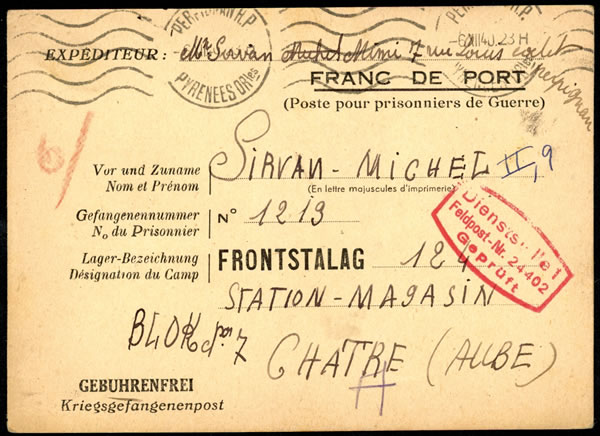 PERPIGNAN H.P.
PYRENEES Ories
23 H
EXPÉDITEUR : Mr Sirvan Michel Mimi 7 rue Louis
perpignan
FRANC DE PORT
(Poste pour prisonniers de Guerre)
6/
Vor und Zuname
Nom et Prénom
SIRVAN - MICHEL II, 9
(En lettre majuscules d'imprimerie)
Gefangenennummer
No du Prisonnier
N° 1219
Lager-Bezeichnung
Désignation du Camp
FRONTSTALAG 124
Dienststelle
Feldpost-Nr. 24402
Geprüft
STATION - MAGASIN
BLOK 7
CHATRE (AUBE)
GEBUHRENFREI
Kriegsgefangenenpost